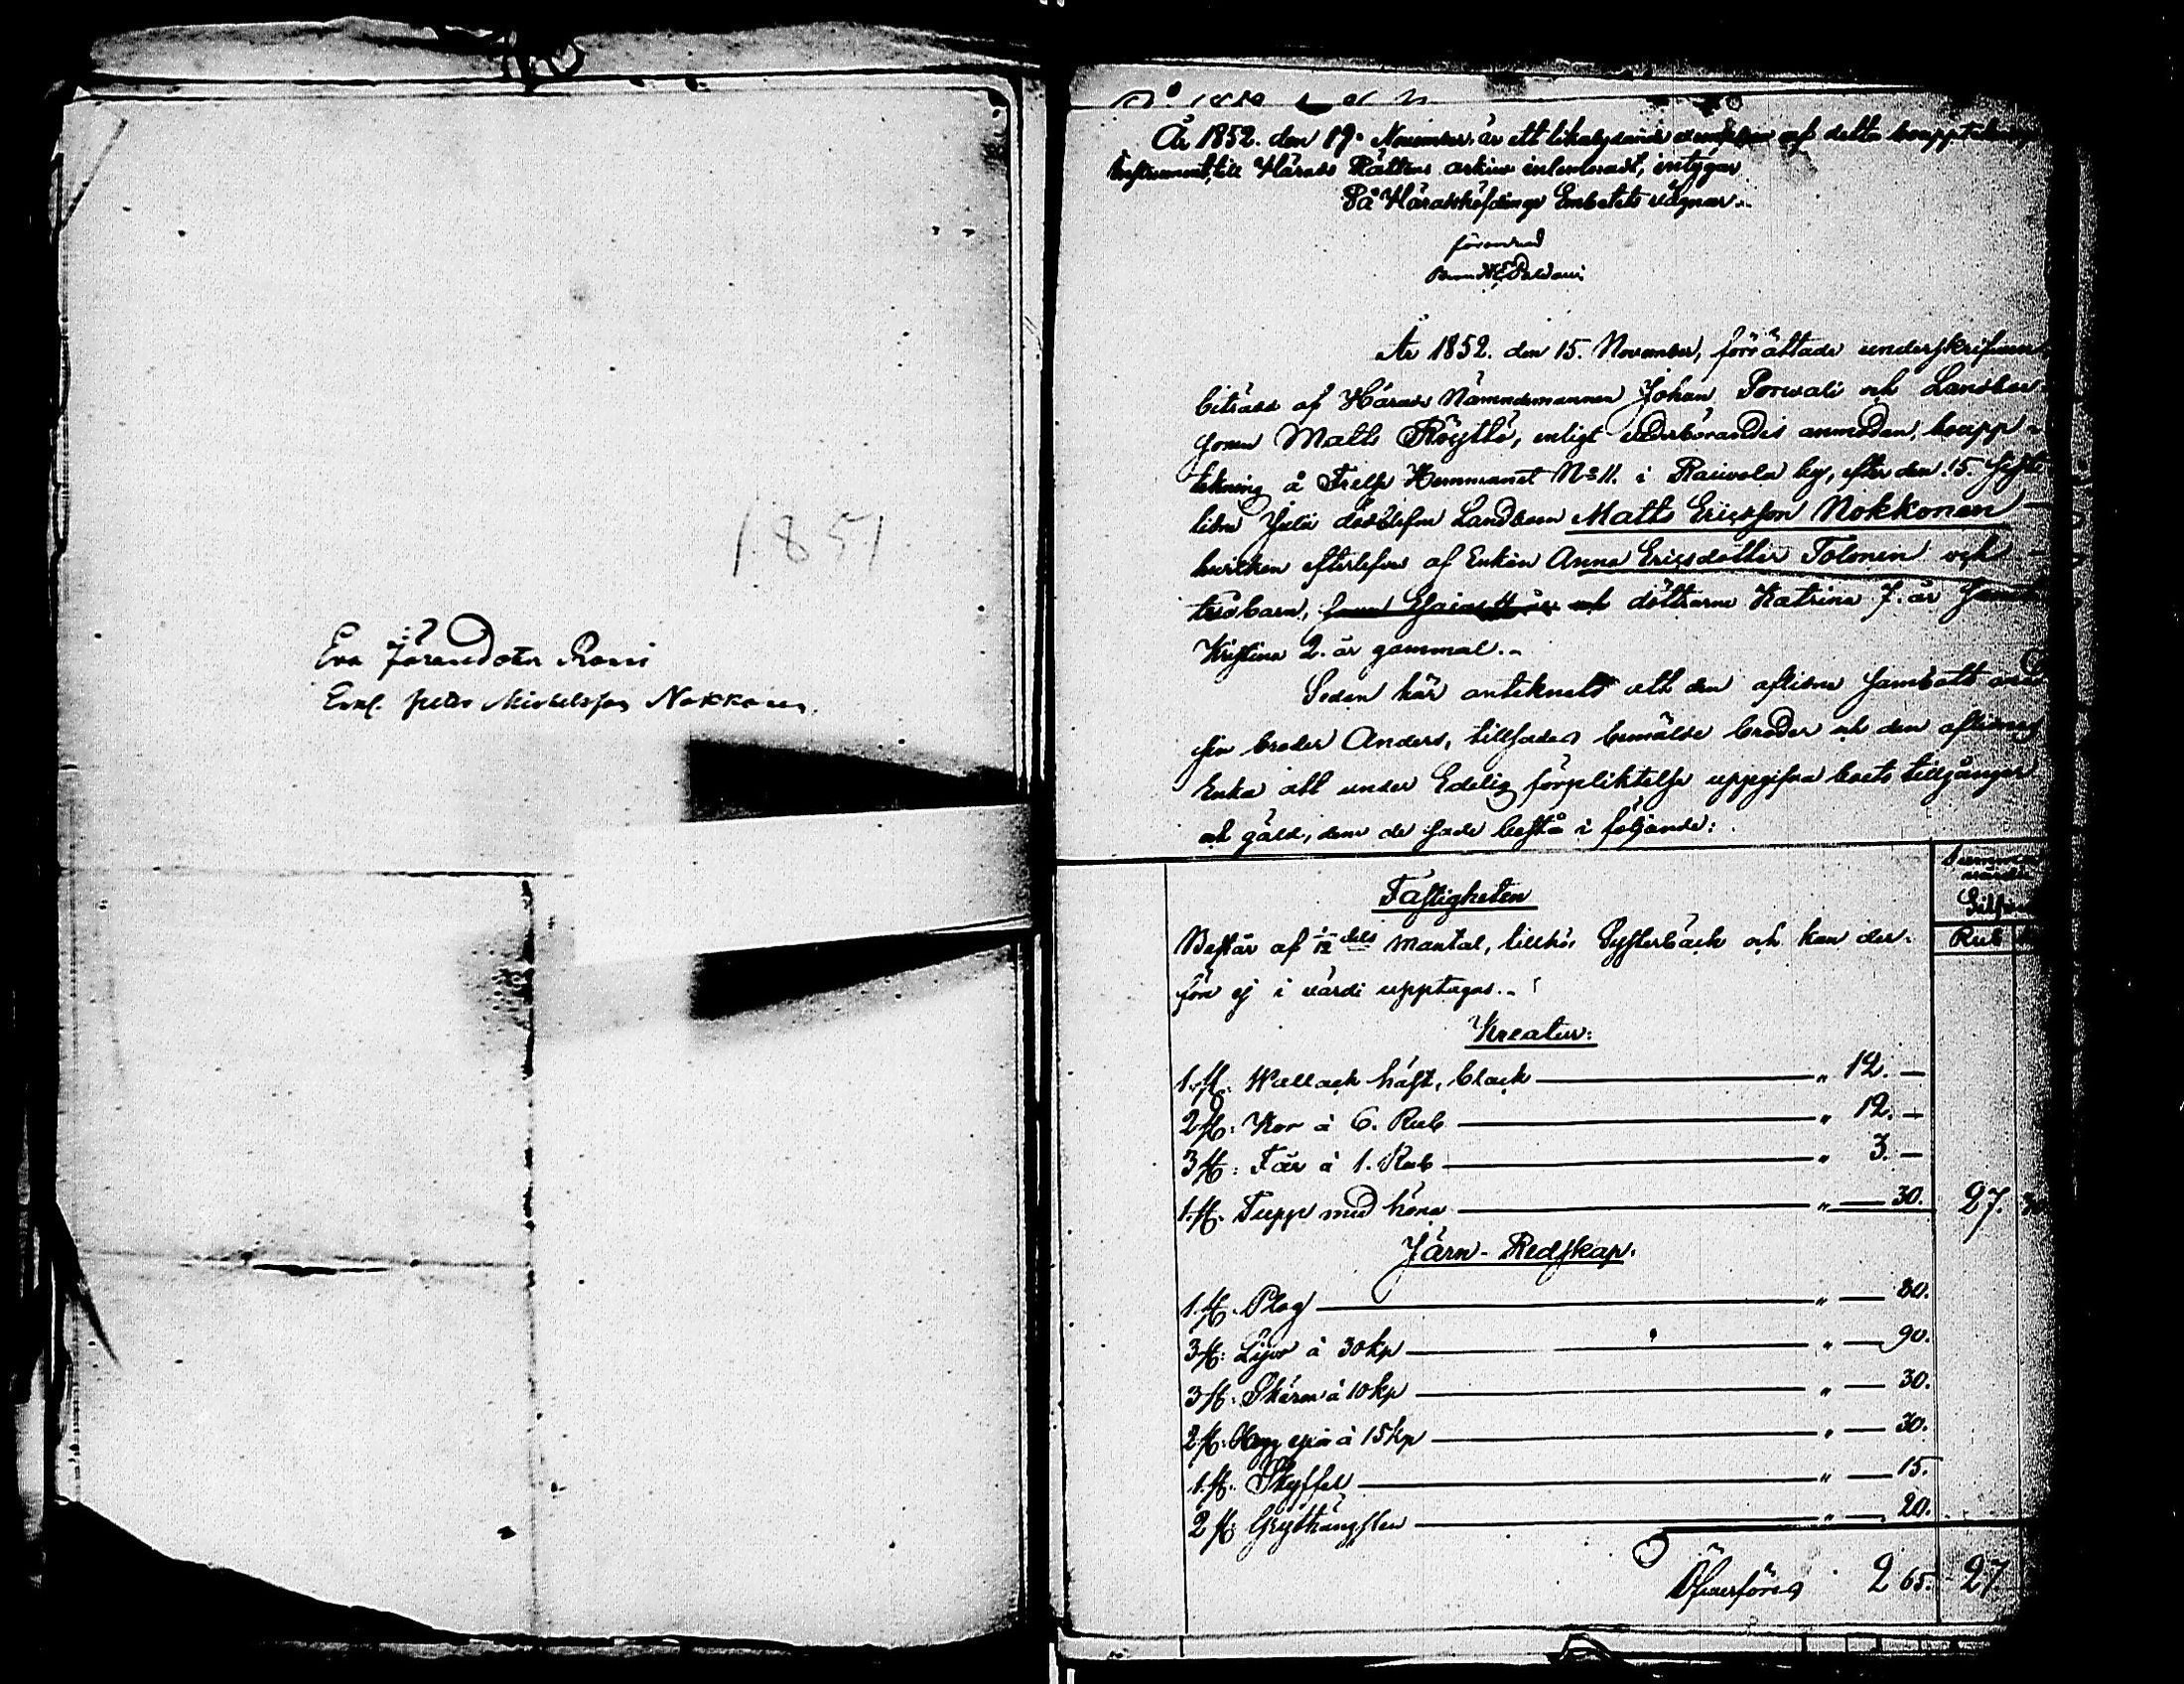 1851
Eva Göransdoter Roni
Enkl. Peter Michelsson Nokkonen
År 1852. den 19. November, är ett likalydande exemplar af detta boupptecknings
Instrument, till Härads Rättens arkiv inlemnadt, intygar
På Häradshöfdinge Embetets vägnar.
År 1852. den 15. November, förrättade underskrifven
biträdd af Härads Nämndemannen Johan Porvali och Landbon
sonen Matts Röyttö, enligt vederbörandes anmodan, boupp-
tekning å Frelse Hemmanet No 11. i Raivola by, efter den 15. sist-
lidne Julii dödblefne Landboen Matts Ericsson Nokkonen
hvilken efterlefves af Enkan Anna Ericsdotter Tolonen och
två barn, döttrarne Katrina 7. år samt
Kristina 2. år gammal.
Sedan här anteknats att den aflidne sambott med
sin broder Anders, tillsades bemälde broder och den aflidnes
Enka att under Edelig förpliktelse uppgifva boets tillgångar
och gäld, dem de sade bestå i följande:
Silfver
Rub
Fastigheten
Består af 1/12 dels Mantal, tillhör Systerbäck och kan der-
före ej i värdi upptagas.
Kreatur:
1. st. Wallack häst, black " 12. —
2 st: Kor à 6. Rub " 12. —
3 st: Får à 1. Rub " 3. —
1. st. Tupp med höna " — 30. 27. 30
Järn-Redskap.
1. st. Plog " — 80.
3 st: Lijor à 30 kp " — 90.
3 st: Skäror à 10 kp " — 30.
2 st: Hugg yxor à 15 kp " — 30.
1. st. Skyffel " — 15.
2 st: Grythängslen " — 20.
Öfverföres 2 65. 27